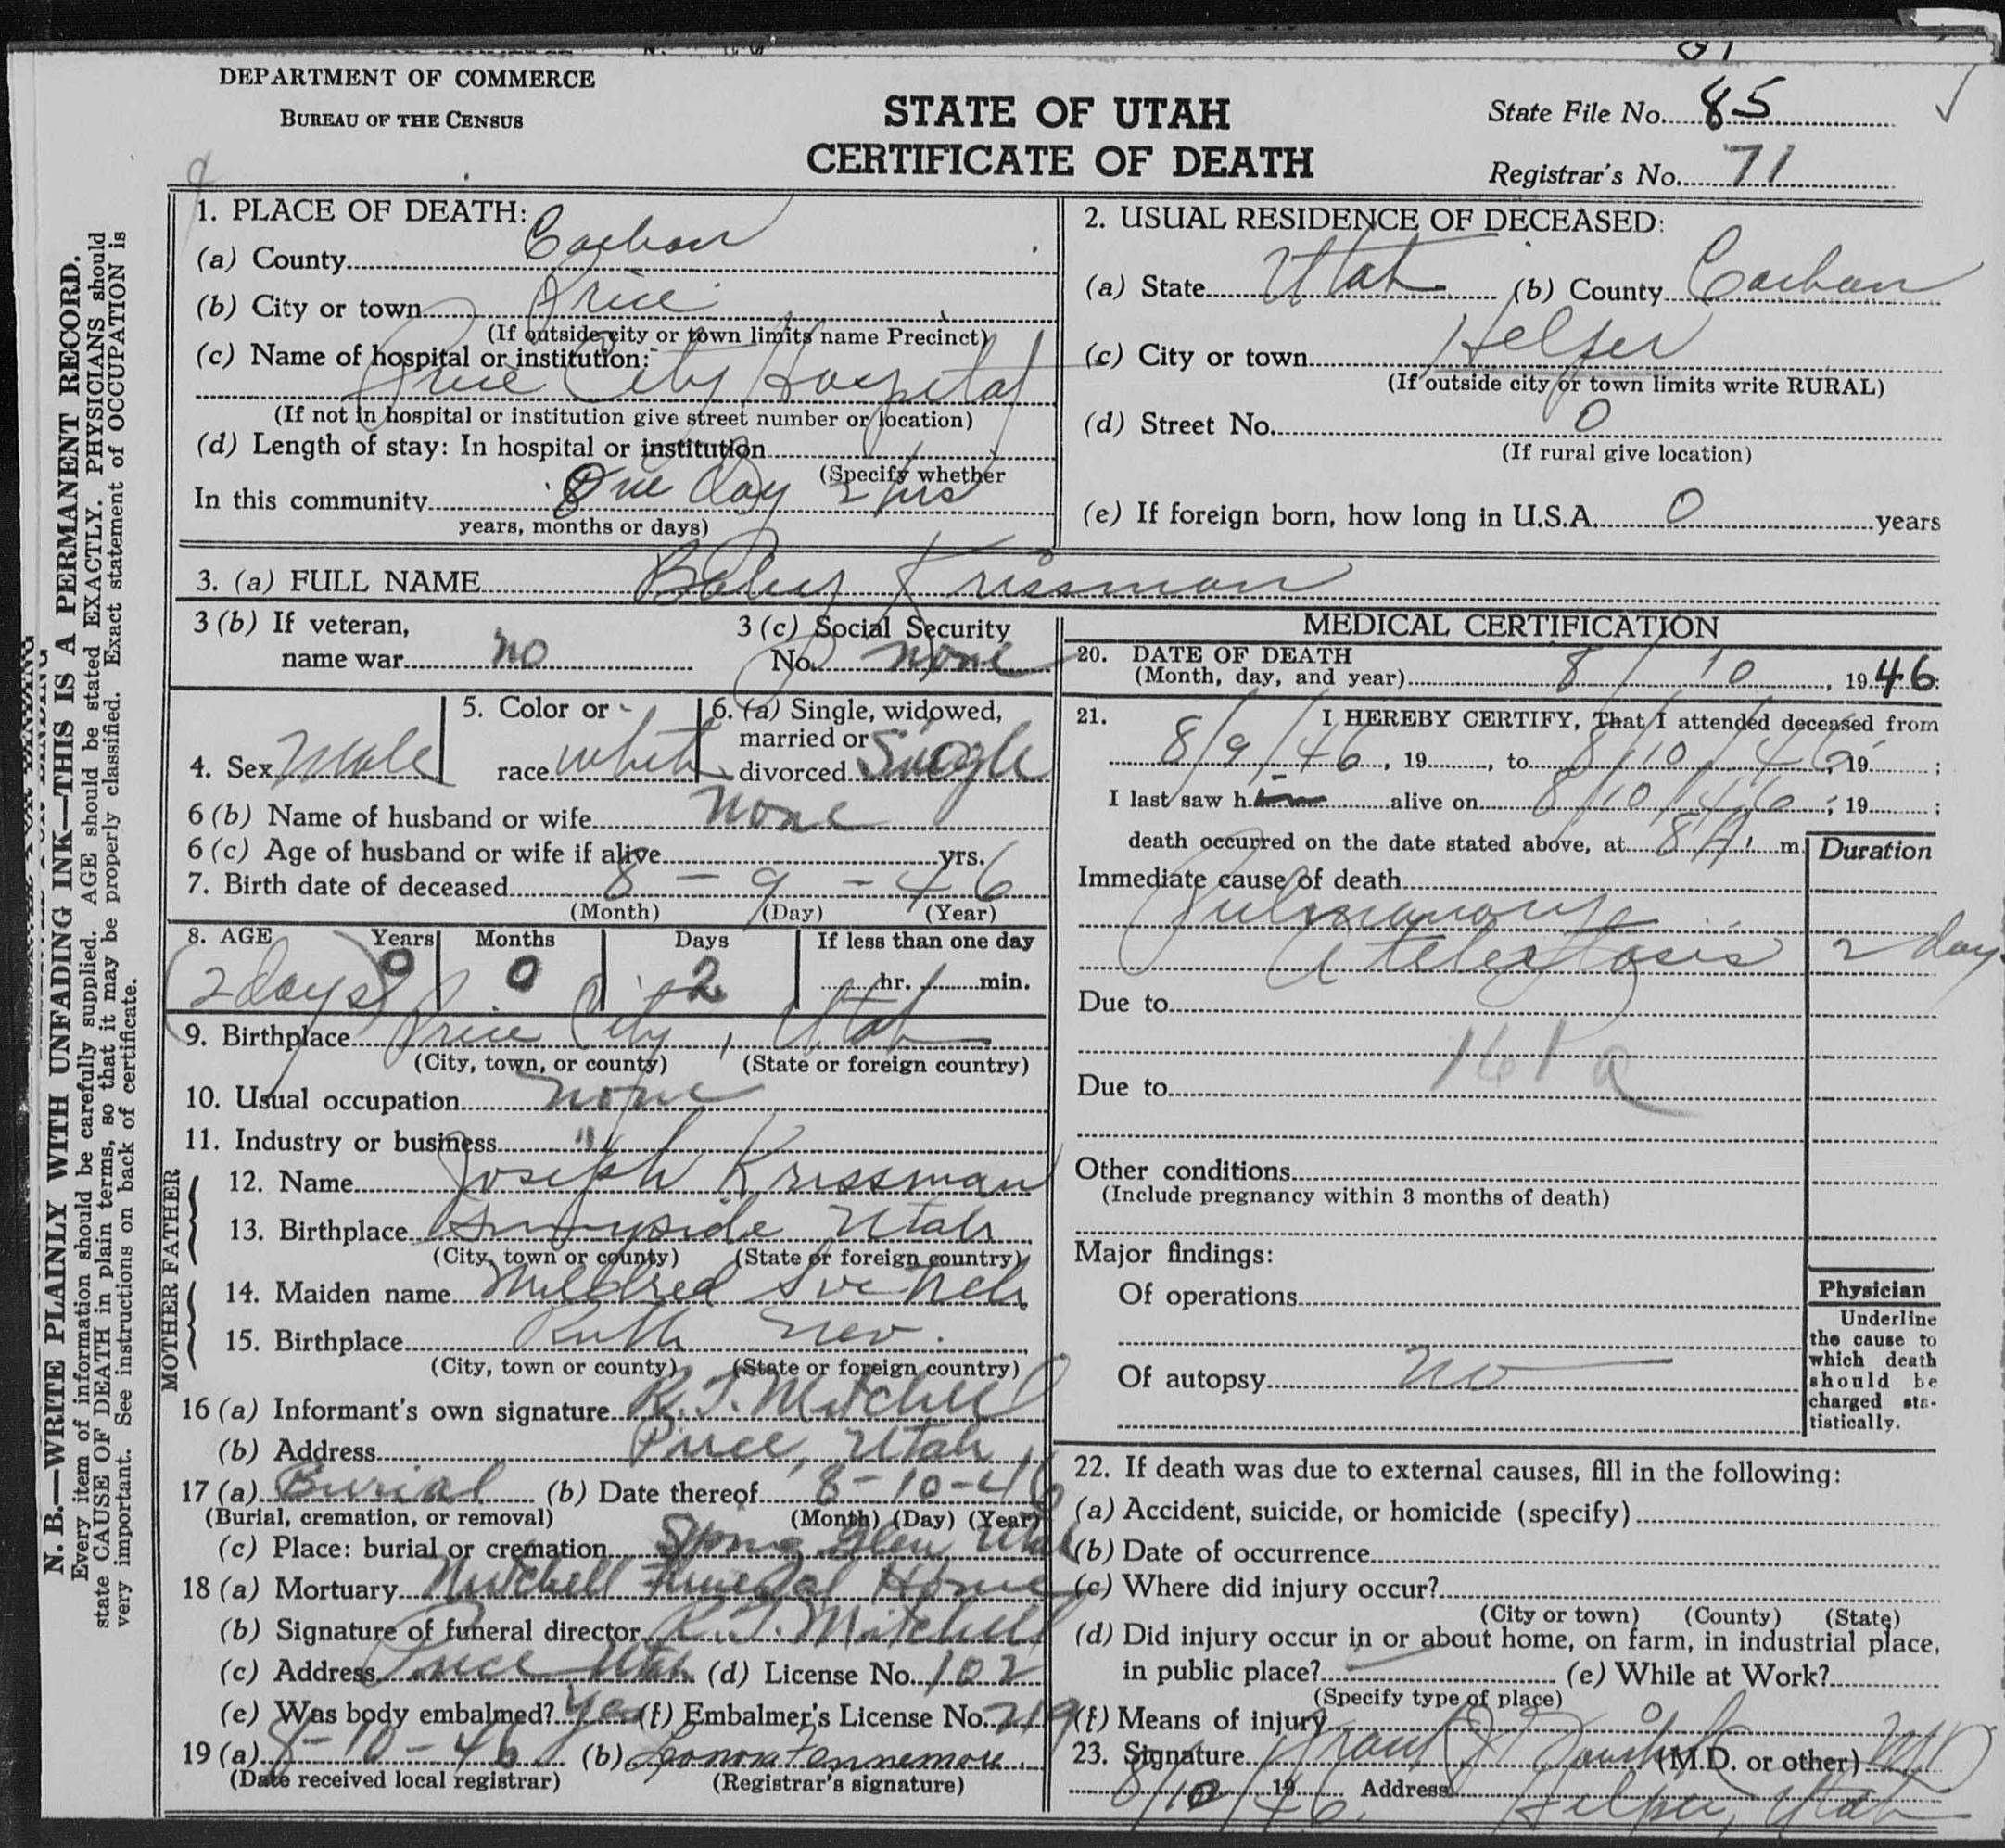 DEPARTMENT OF COMMERCE
BUREAU OF THE CENSUS
STATE OF UTAH
CERTIFICATE OF DEATH
State File No. 85
Registrar's No. 71
N. B.—WRITE PLAINLY WITH UNFADING INK—THIS IS A PERMANENT RECORD.
Every item of information should be carefully supplied. AGE should be stated EXACTLY. PHYSICIANS should
state CAUSE OF DEATH in plain terms, so that it may be properly classified. Exact statement of OCCUPATION is
very important. See instructions on back of certificate.
1. PLACE OF DEATH:
(a) County Carbon
(b) City or town Price
(If outside city or town limits name Precinct)
(c) Name of hospital or institution:
Price City Hospital
(If not in hospital or institution give street number or location)
(d) Length of stay: In hospital or institution
(Specify whether
In this community One day 2 hrs
years, months or days)
2. USUAL RESIDENCE OF DECEASED:
(a) State Utah (b) County Carbon
(c) City or town Helper
(If outside city or town limits write RURAL)
(d) Street No. 0
(If rural give location)
(e) If foreign born, how long in U.S.A. 0 years
3. (a) FULL NAME Baby Krissman
3 (b) If veteran,
name war no
3 (c) Social Security
No. none
4. Sex Male
5. Color or
race White
6. (a) Single, widowed,
married or
divorced Single
6 (b) Name of husband or wife none
6 (c) Age of husband or wife if alive yrs.
7. Birth date of deceased 8 - 9 - 46
(Month) (Day) (Year)
8. AGE Years Months Days If less than one day
(2 days) 0 0 2 hr. min.
9. Birthplace Price City, Utah
(City, town, or county) (State or foreign country)
10. Usual occupation none
11. Industry or business "
FATHER
12. Name Joseph Krissman
13. Birthplace Sunnyside Utah
(City, town or county) (State or foreign country)
MOTHER
14. Maiden name Mildred
15. Birthplace Ruth Nev.
(City, town or county) (State or foreign country)
16 (a) Informant's own signature R. T. Mitchell
(b) Address Price, Utah
17 (a) Burial (b) Date thereof 8-10-46
(Burial, cremation, or removal) (Month) (Day) (Year)
(c) Place: burial or cremation Spring Glen Utah
18 (a) Mortuary Mitchell Funeral Home
(b) Signature of funeral director R. T. Mitchell
(c) Address Price Utah (d) License No. 102
(e) Was body embalmed? Yes (f) Embalmer's License No. 219
19 (a) 8-10-46 (b) Leonora Fennemore
(Date received local registrar) (Registrar's signature)
MEDICAL CERTIFICATION
20. DATE OF DEATH
(Month, day, and year) 8 / 10, 1946
21. I HEREBY CERTIFY, That I attended deceased from
8/9/46, 19, to 8/10/46, 19 ;
I last saw him alive on 8/10/46, 19 ;
death occurred on the date stated above, at 8 A. m.
Duration
Immediate cause of death
Pulmonary
Atelectasis 2 days
Due to
161a
Due to
Other conditions
(Include pregnancy within 3 months of death)
Major findings:
Of operations
Of autopsy no
Physician
Underline
the cause to
which death
should be
charged sta-
tistically.
22. If death was due to external causes, fill in the following:
(a) Accident, suicide, or homicide (specify)
(b) Date of occurrence
(c) Where did injury occur?
(City or town) (County) (State)
(d) Did injury occur in or about home, on farm, in industrial place,
in public place? (e) While at Work?
(Specify type of place)
(f) Means of injury
23. Signature (M.D. or other) MD
8/10/46 19 Address Helper, Utah